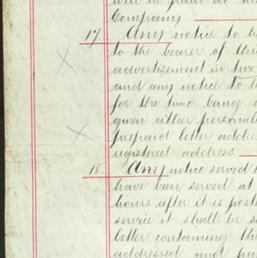 Company
17. Any notice to be
to the bearer of
advertisement in two
and any notice to be
for the time being
given either personal
prepaid letter
registered address
18. Any notice served
have been served at
hours after it is post
service it shall be
letter containing the
addressed and